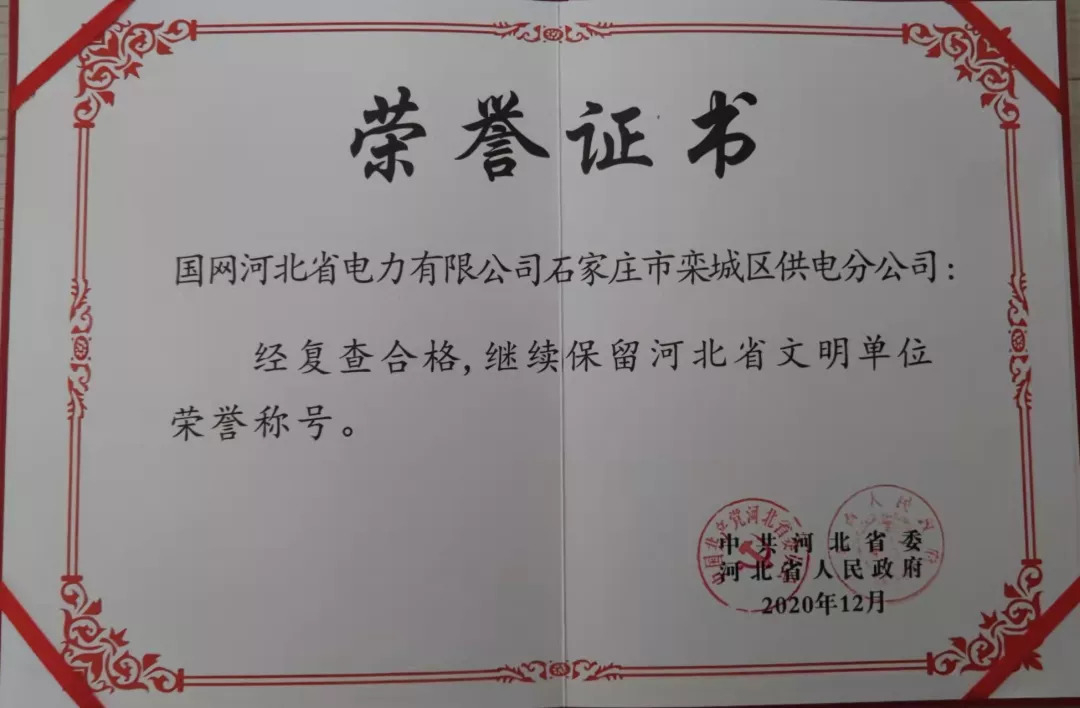 荣誉证书
国网河北省电力有限公司石家庄市栾城区供电分公司：
经复查合格,继续保留河北省文明单位
荣誉称号。
中国共产党河北省委员会
人民政府
中共河北省委
河北省人民政府
2020年12月